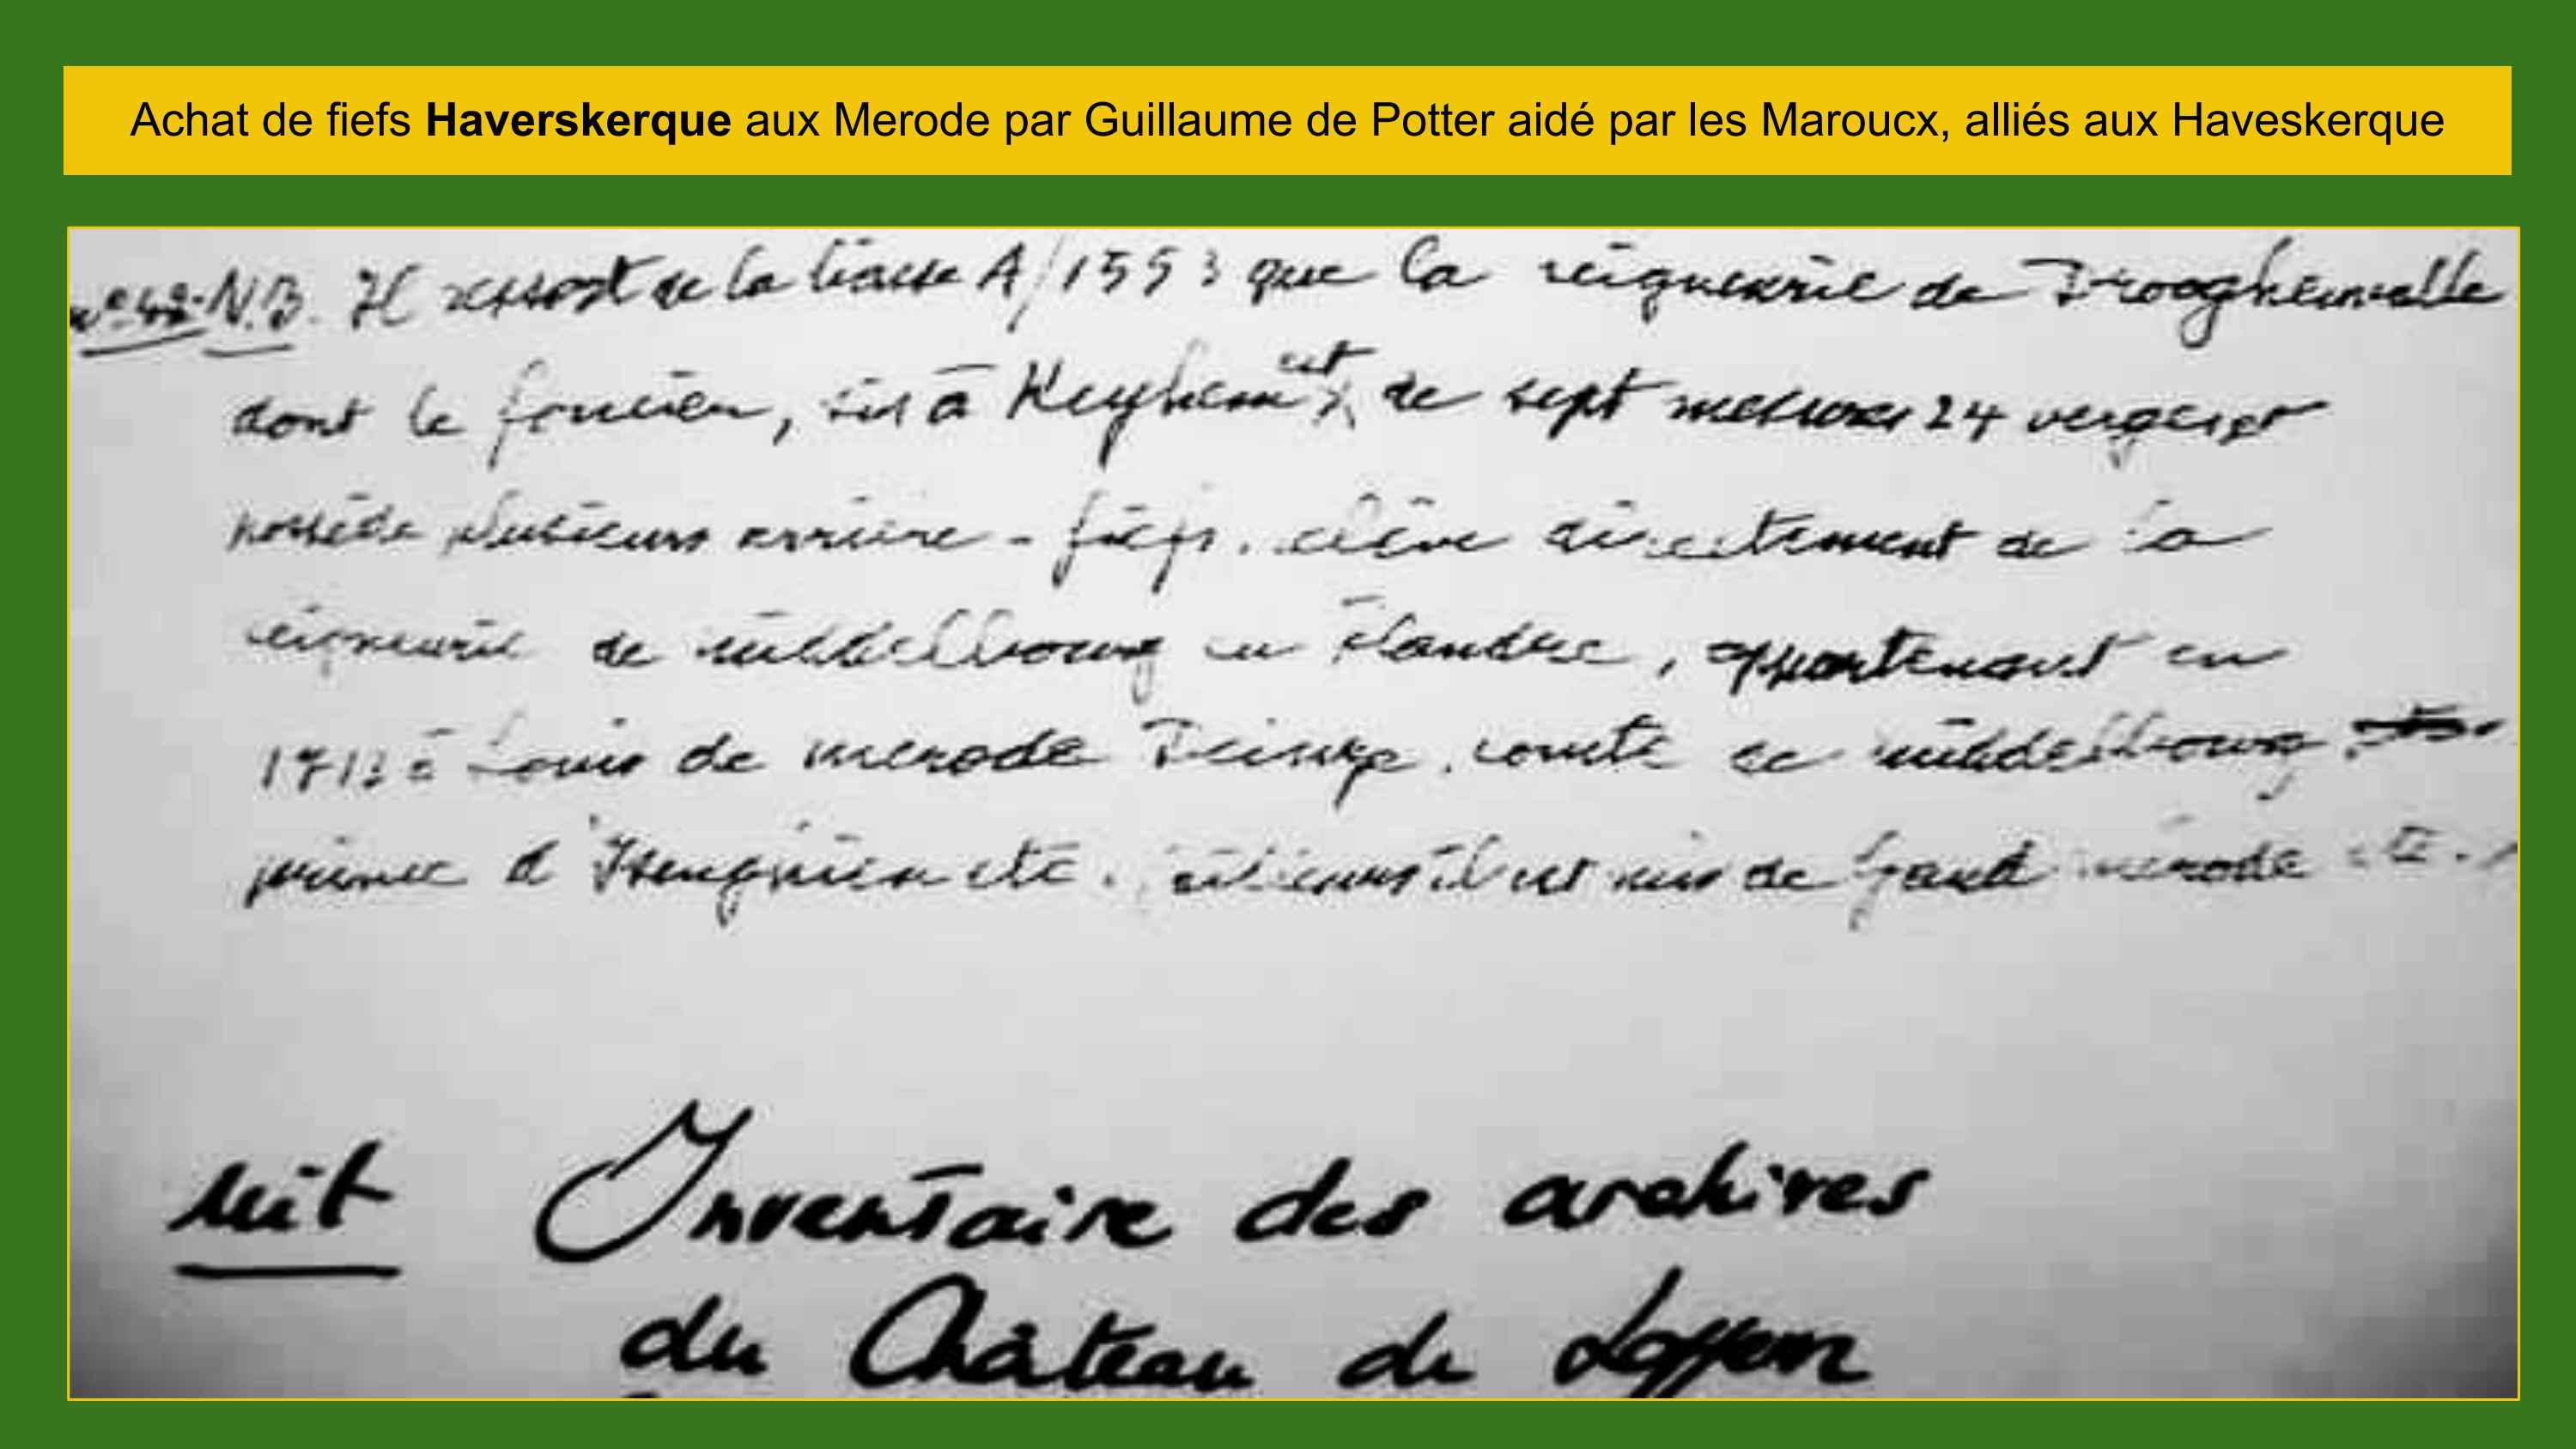 Achat de fiefs Haverskerque aux Merode par Guillaume de Potter aidé par les Maroucx, alliés aux Haveskerque
N.B. Il ressort de la liasse A/1553 que la seigneurie de Drooghemvelle
dont le foncier, sis à Keyhem est de sept mesures 24 verges et
possède plusieurs arrière-fiefs, relève directement de la
seigneurie de middelbourg en Flandre, appartenant en
à Louis de merode Deinze, comte de middelbourg
prince d'Isenguien etc. ailleurs il est mis de Gand merode etc.
Inventaire des archives
du Château de Loppem